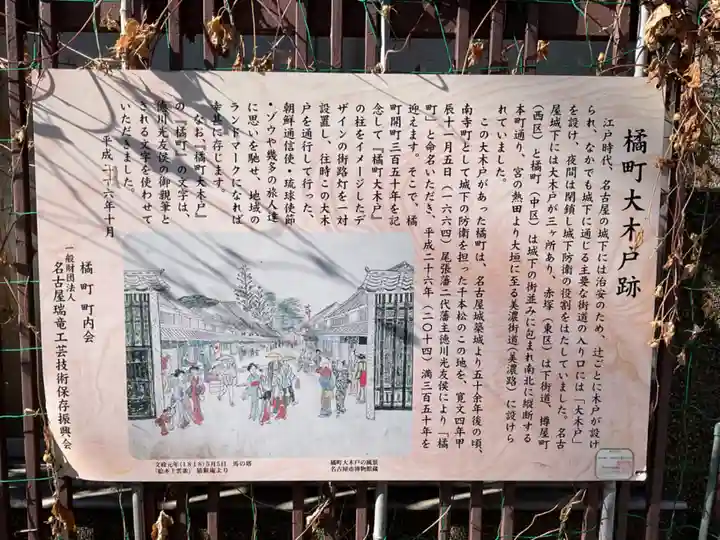 橘町大木戸跡
江戸時代、名古屋の城下には治安のため、辻ごとに木戸が設け
られ、なかでも城下に通じる主要な街道の入り口には「大木戸」
を設け、夜間は閉鎖し城下防衛の役割をはたしていました。名古
屋城下には大木戸が三ヶ所あり、赤塚(東区)は下街道、樽屋町
(西区)と橘町(中区)は城下の街並みに包まれ南北に縦断する
本町通り、宮の熱田より大垣に至る美濃街道(美濃路)に設けら
れていました。
この大木戸があった橘町は、名古屋城築城より五十余年後の頃、
南寺町として城下の防衛を担った千本松のこの地を、寛文四年甲
辰十一月五日(一六六四)尾張藩二代藩主徳川光友侯により「橘
町」と命名いただき、平成二十六年(二〇一四)満三百五十年を
迎えます。そこで、橘
町開町三百五十年を記
念して『橘町大木戸』
の柱をイメージしたデ
ザインの街路灯を一対
設置し、往時この大木
戸を通行して行った、
朝鮮通信使・琉球使節
・ゾウや幾多の旅人達
に思いを馳せ、地域の
ランドマークになれば
幸甚に存じます。
なお『橘町大木戸』
の『橘町』の文字は、
徳川光友侯の御親筆と
される文字を使わせて
いただきました。
平成二十六年十月
橘町町内会
一般財団法人
名古屋瑞竜工芸技術保存振興会
文政元年(1818)5月5日 馬の塔
「絵本上雲雀」猿猴庵より
橘町大木戸の風景
名古屋市博物館蔵